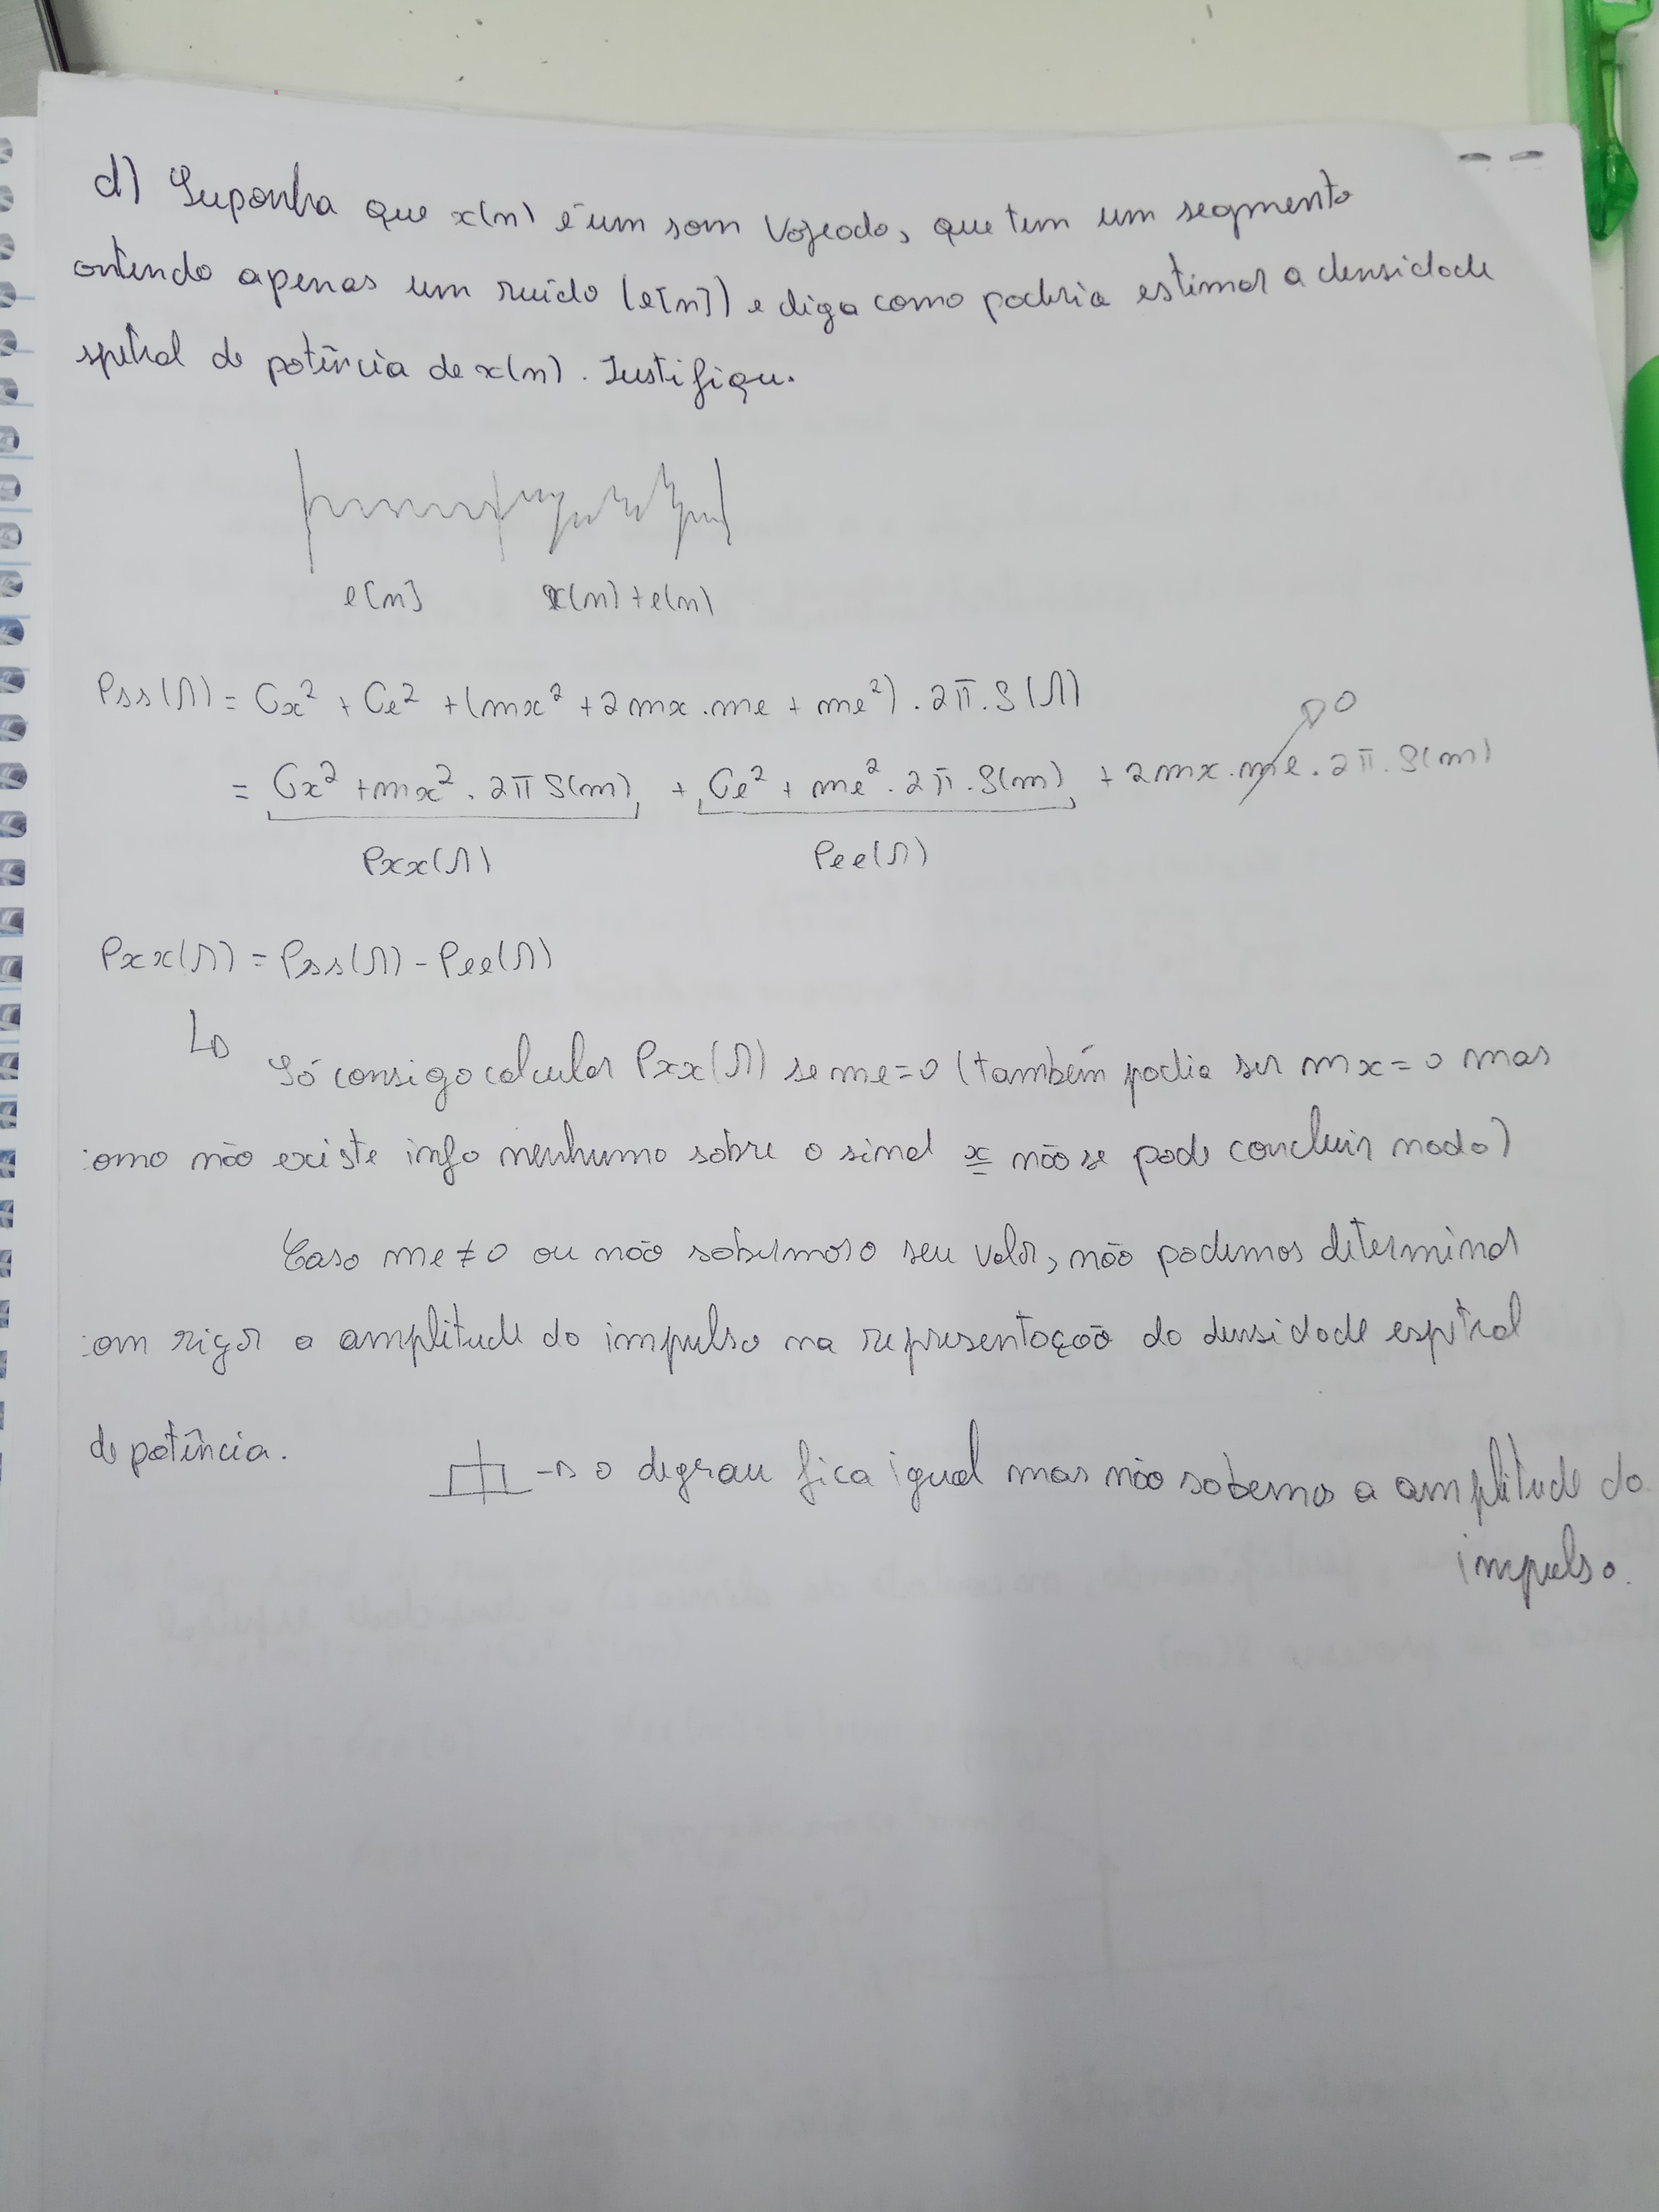 d) Suponha que x(n) é um som vozeado, que tem um segmento
ontendo apenas um ruído (e[n]) e diga como poderia estimar a densidade
spetral de potência de x(n). Justifique.
e[n] x(n)+e(n)
Pss(Ω) = Cx² + Ce² + (mx² + 2mx.me + me²) . 2π.δ(Ω)
= Cx² + mx² . 2π δ(m) + Ce² + me² . 2π . δ(m) + 2mx.me . 2π. δ(m) → 0
Pxx(Ω) Pee(Ω)
Pxx(Ω) = Pss(Ω) - Pee(Ω)
↳ Só consigo calcular Pxx(Ω) se me=0 (também podia ser mx=0 mas
omo não existe info nenhuma sobre o sinal x não se pode concluir nada)
Caso me≠0 ou não sabermos o seu valor, não podemos determinar
om rigor a amplitude do impulso na representação da densidade espetral
de potência.
→ o degrau fica igual mas não sabemos a amplitude do
impulso.